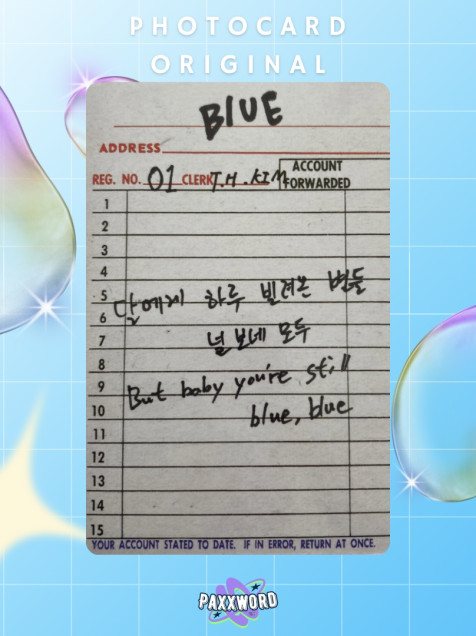 PHOTOCARD
ORIGINAL
BLUE
ADDRESS
REG. NO. 01 CLERK T.H. KIM ACCOUNT FORWARDED
1
2
3
4
5
달에게 하루 빌려온 별들
6
7
널 보네 모두
8
9
But baby you're still
10
blue, blue
11
12
13
14
15
YOUR ACCOUNT STATED TO DATE. IF IN ERROR, RETURN AT ONCE.
PAXXWORD